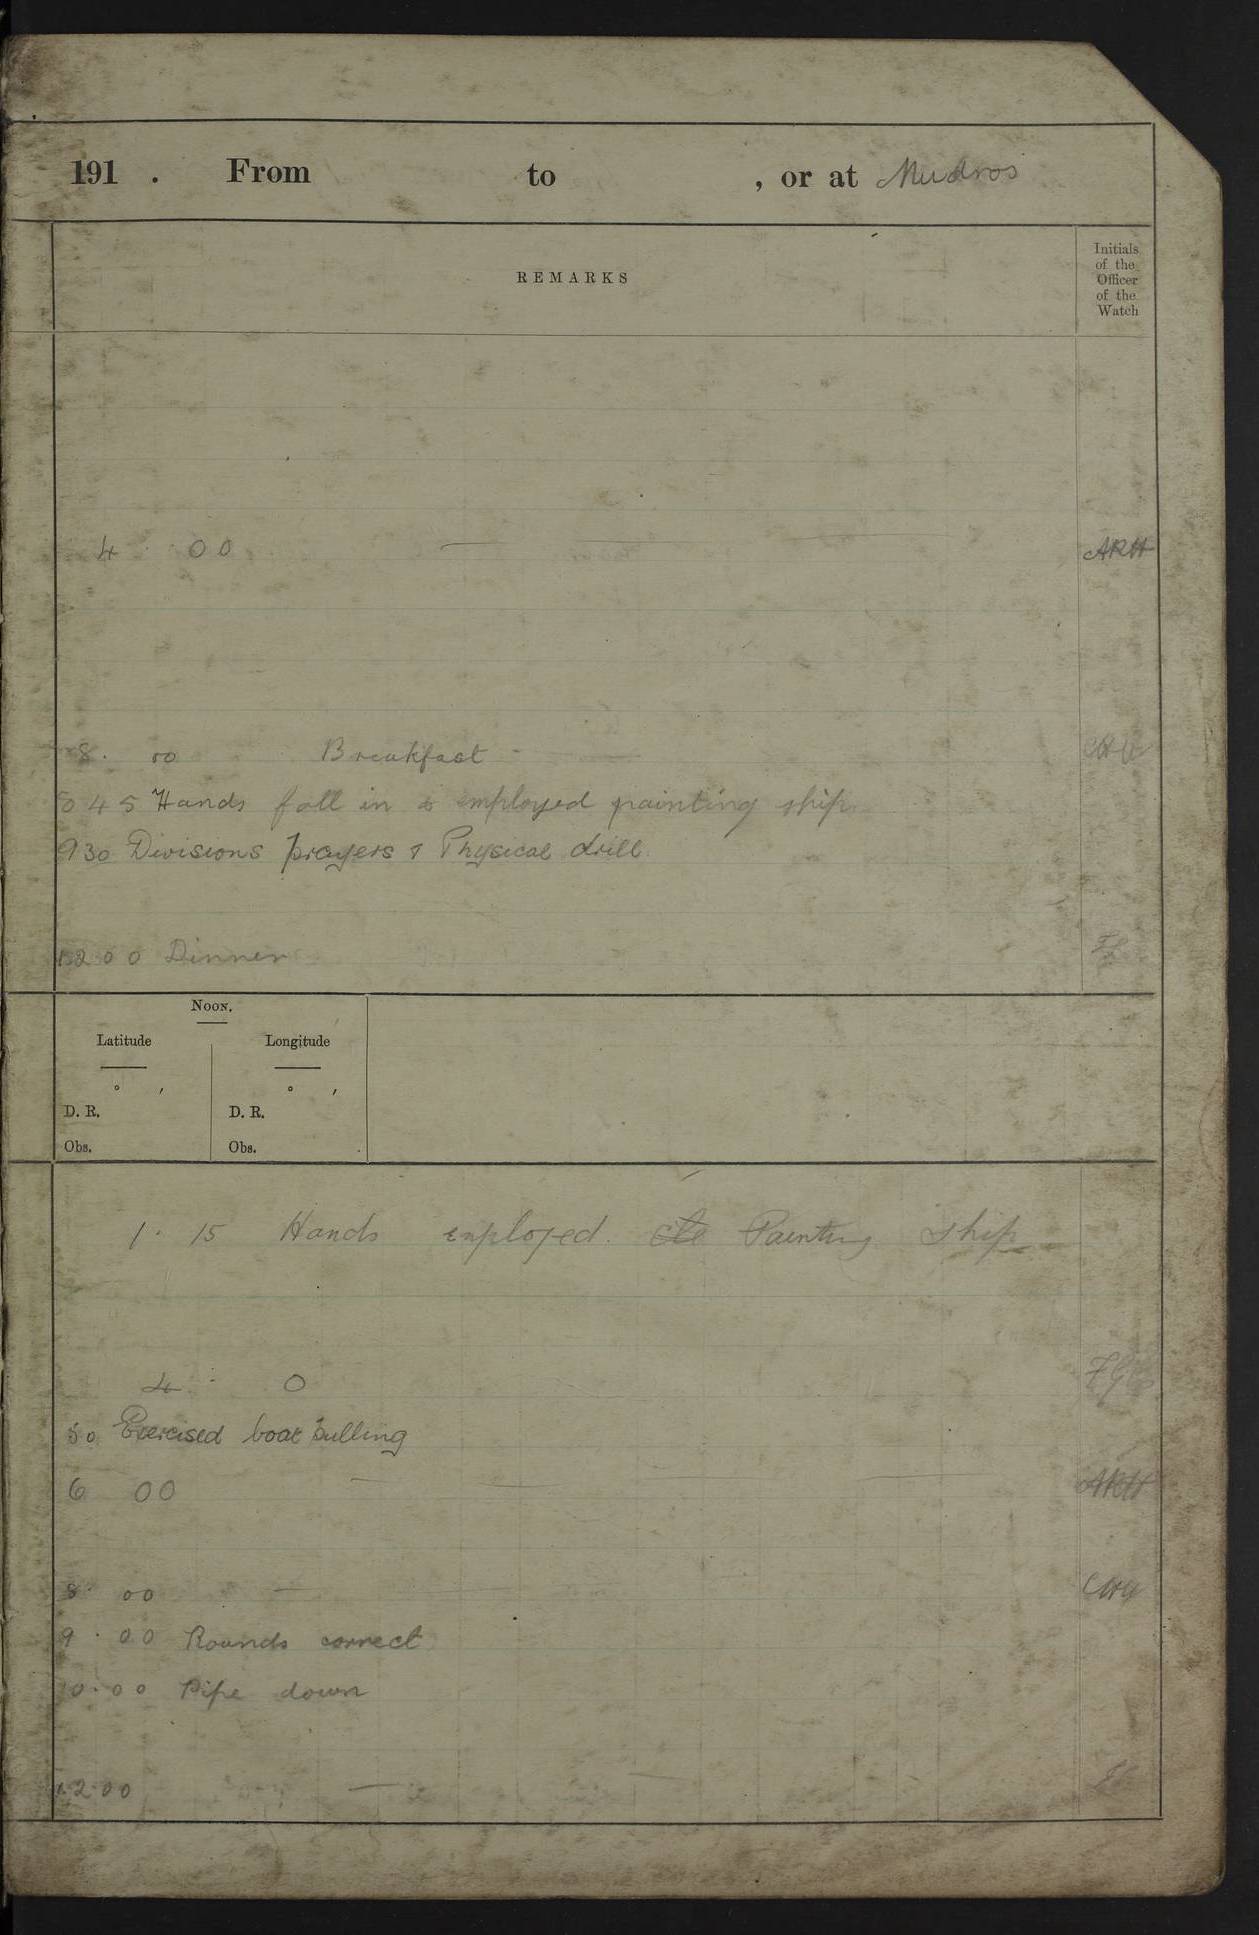 191 . From to , or at Mudros
REMARKS
Initials
of the
Officer
of the
Watch
4 . 00 ARH
8. 00 Breakfast
8 45 Hands fall in & employed painting ship.
930 Divisions prayers & Physical drill.
1200 Dinner
Noon.
Latitude Longitude
° ′ ° ′
D. R. D. R.
Obs. Obs.
1. 15 Hands employed. Painting ship
4 . 0
50 Exercised boat pulling
6 00 ARH
8. 00
9 . 00 Rounds correct
10.00 Pipe down
12.00